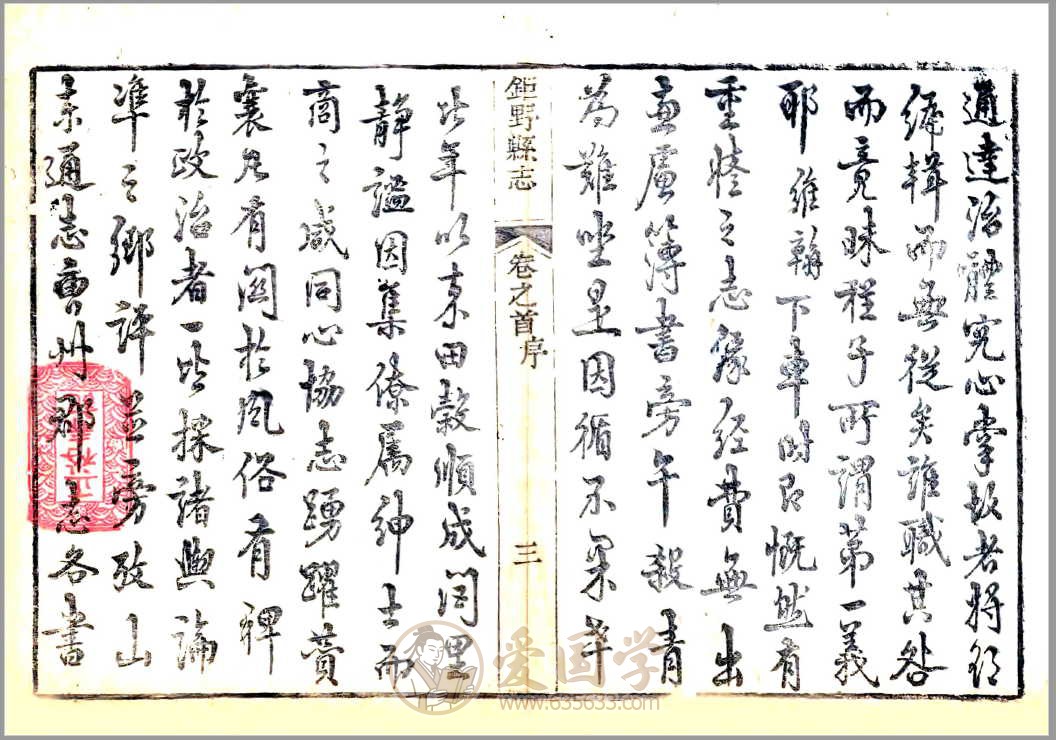 通達治體究心掌故者將欲
編輯而無從矣誰職其咎
而竟昧程子所謂第一義
耶維翰下車時即慨然有
重修之志緣經費無出
兼慮簿書旁午殺青
為難坐是因循不果幸
鉅野縣志
卷之首序
三
比年以來田穀順成閭里
靜謐因集僚屬紳士而
商之咸同心協志踴躍贊
襄凡有關於風俗有裨
於政治者一一採諸輿論
準之鄉評並旁攷山
東通志曹州郡志各書
爱国学
www.635633.com